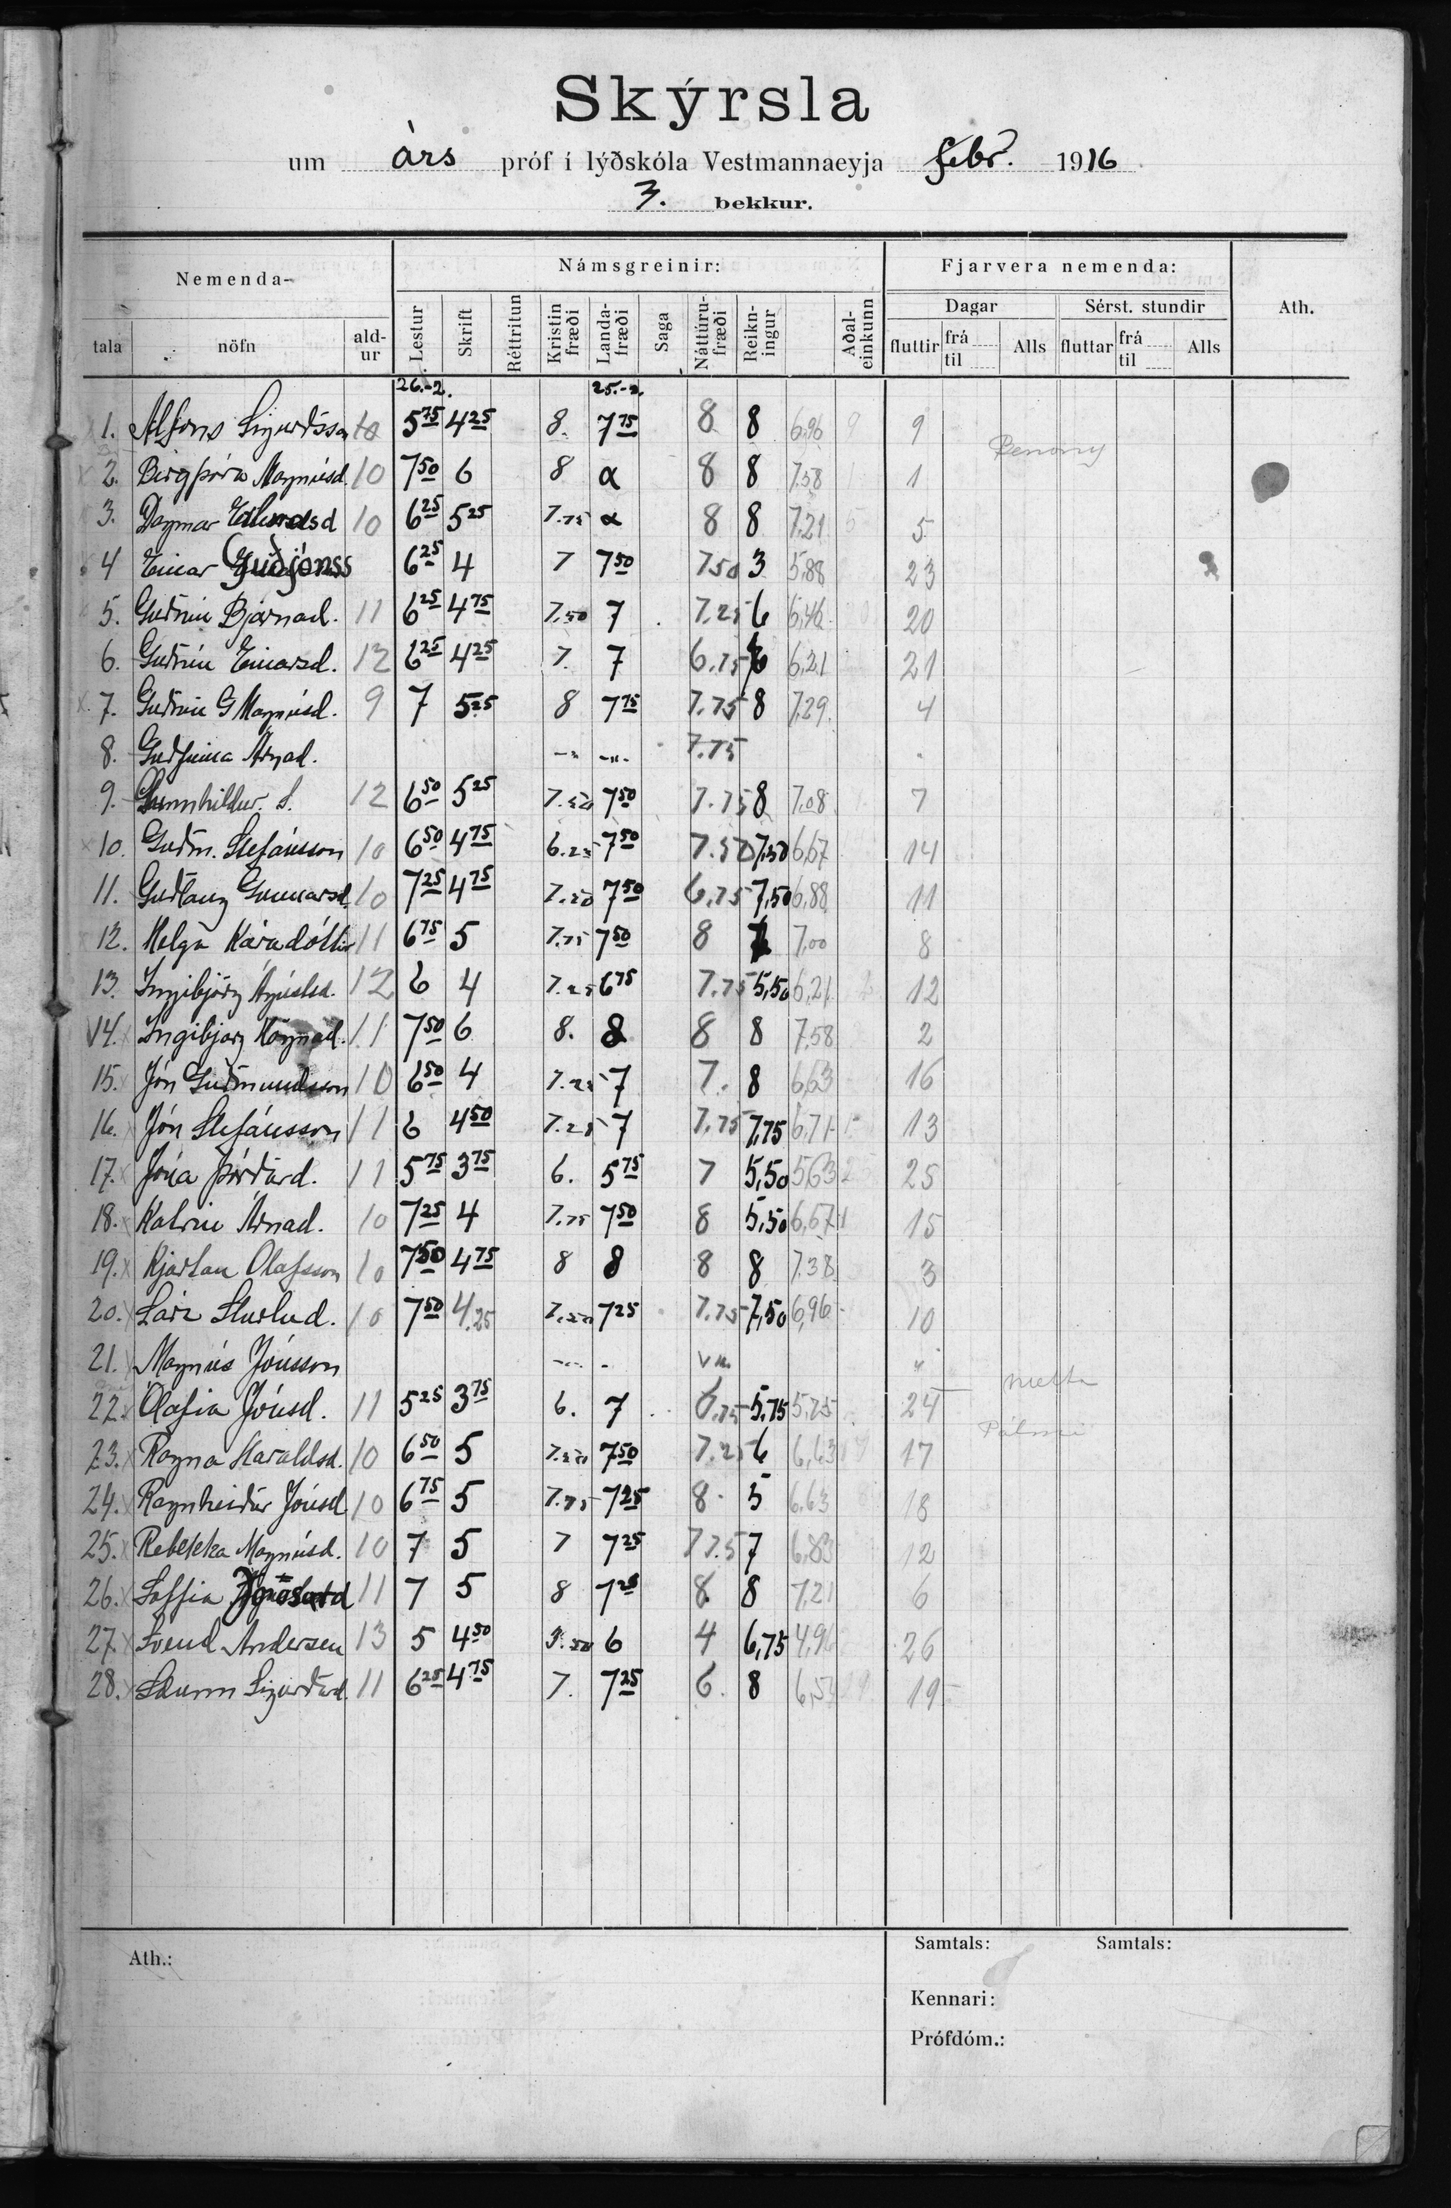 Skýrsla
um árs próf í lýðskóla Vestmannaeyja febr. 1916
3. bekkur.
Nemenda- Námsgreinir: Fjarvera nemenda: Ath.
Dagar Sérst. stundir
tala nöfn ald-ur Lestur Skrift Réttritun Kristin fræði Landa-fræði Saga Náttúru-fræði Reikn-ingur Aðal-einkunn fluttir frá til Alls fluttar frá til Alls
26.-2. 25.-2.
1. Alfons Sigurðsson 10 5 75 4 25 8. 7 75 8 8 6,96 9
2. Bergþóra Magnúsd. 10 7 50 6 8 α 8 8 7,58 1
3. Dagmar 10 6 25 5 25 7.75 α 8 8 7,21 5
4 Einar Guðjónss 6 25 4 7 7 50 7 50 3 5,88 23
5. Guðrún Bjarnad. 11 6 25 4 75 7.50 7 7.25 6 6,46 20
6. Guðrún Einarsd. 12 6 25 4 25 7. 7 6.75 6 6,21 21
7. Guðrún G Magnúsd. 9 7 5 25 8 7 75 7.75 8 7,29 4
8. Guðfinna Árnad. -"- -"- 7.75
9. Gunnhildur. S. 12 6 50 5 25 7.50 7 50 7.75 8 7,08 7
10. Guðm. Stefánsson 10 6 50 4 75 6.25 7 50 7.50 7,50 6,67 14
11. Guðlaug Gunnarsd. 10 7 25 4 75 7.50 7 50 6,75 7,50 6,88 11
12. Helga Káradóttir 11 6 75 5 7.75 7 50 8 7,00 8
13. Ingibjörg Ágústsd. 12 6 4 7.25 6 75 7.75 5,50 6,21 12
14. Ingibjörg Magnad. 11 7 50 6 8. 8 8 8 7,58 2
15. Jón Guðmundsson 10 6 50 4 7.25 7 7. 8 6,63 16
16. Jón Stefánsson 11 6 4 50 7.25 7 7.75 7,75 6,71 13
17. Jóna Þórðard. 11 5 75 3 75 6. 5 75 7 5,50 5,63 25
18. Katrín Árnad. 10 7 25 4 7.75 7 50 8 5,50 6,67 15
19. Kjartan Olafsson 10 7 50 4 75 8 8 8 8 7,38 3
20. Lára Sturlud. 10 7 50 4,25 7.50 7 25 7.75 7,50 6,96 10
21. Magnús Jónsson
22. Ólafía Jónsd. 11 5 25 3 75 6. 7 6.75 5,75 5,75 24
23. Ragna Haraldsd. 10 6 50 5 7.50 7 50 7.25 6 6,63 17
24. Ragnheiður Jónsd 10 6 75 5 7.75 7 25 8. 5 6,63 18
25. Rebekka Magnúsd. 10 7 5 7 7 25 7 7.5 7 6,83 12
26. Soffía 11 7 5 8 7 25 8. 8 7,21 6
27. Svend Andersen 13 5 4 50 3.50 6 4 6,75 4,96 26
28. Sigurðard. 11 6 25 4 75 7. 7 25 6. 8 6,54 19
Ath.:
Samtals: Samtals:
Kennari:
Prófdóm.: